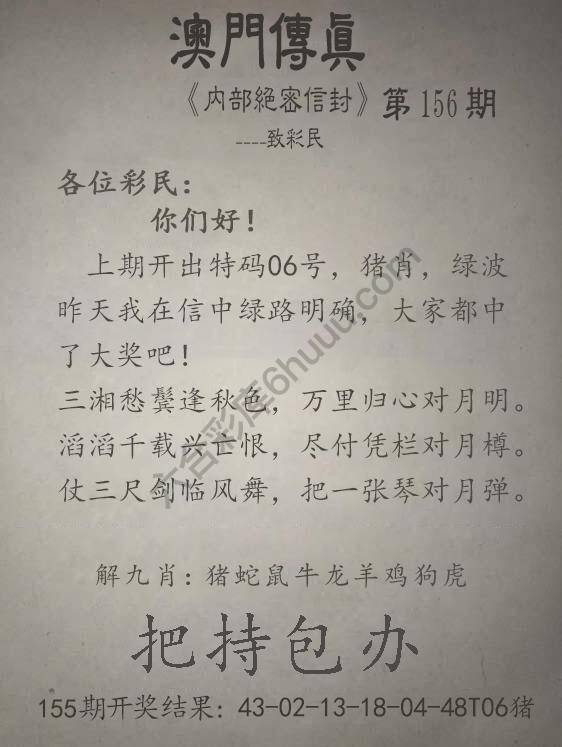 澳門傳眞
《内部絕密信封》第156期
----致彩民
各位彩民：
你们好！
上期开出特码06号，猪肖，绿波
昨天我在信中绿路明确，大家都中
了大奖吧！
三湘愁鬓逢秋色，万里归心对月明。
滔滔千载兴亡恨，尽付凭栏对月樽。
仗三尺剑临风舞，把一张琴对月弹。
解九肖：猪蛇鼠牛龙羊鸡狗虎
把持包办
155期开奖结果：43-02-13-18-04-48T06猪
六合彩库6huuu.com